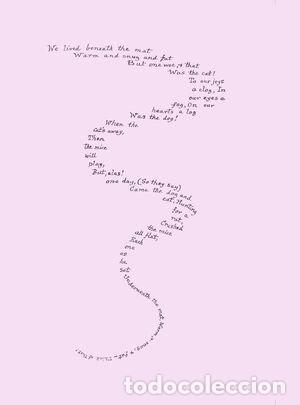 We lived beneath the mat
Warm and snug and fat
But one woe, & that
Was the cat!
To our joys
a clog, In
our eyes a
fog, On our
hearts a log
Was the dog!
When the
cat's away,
Then
the mice
will
play,
But, alas!
one day, (So they say)
Came the dog and
cat, Hunting
for a
rat,
Crushed
the mice
all flat,
Each
one
as
he
sat
Underneath the mat, Warm, & snug, & fat. Think of that!
todocoleccion